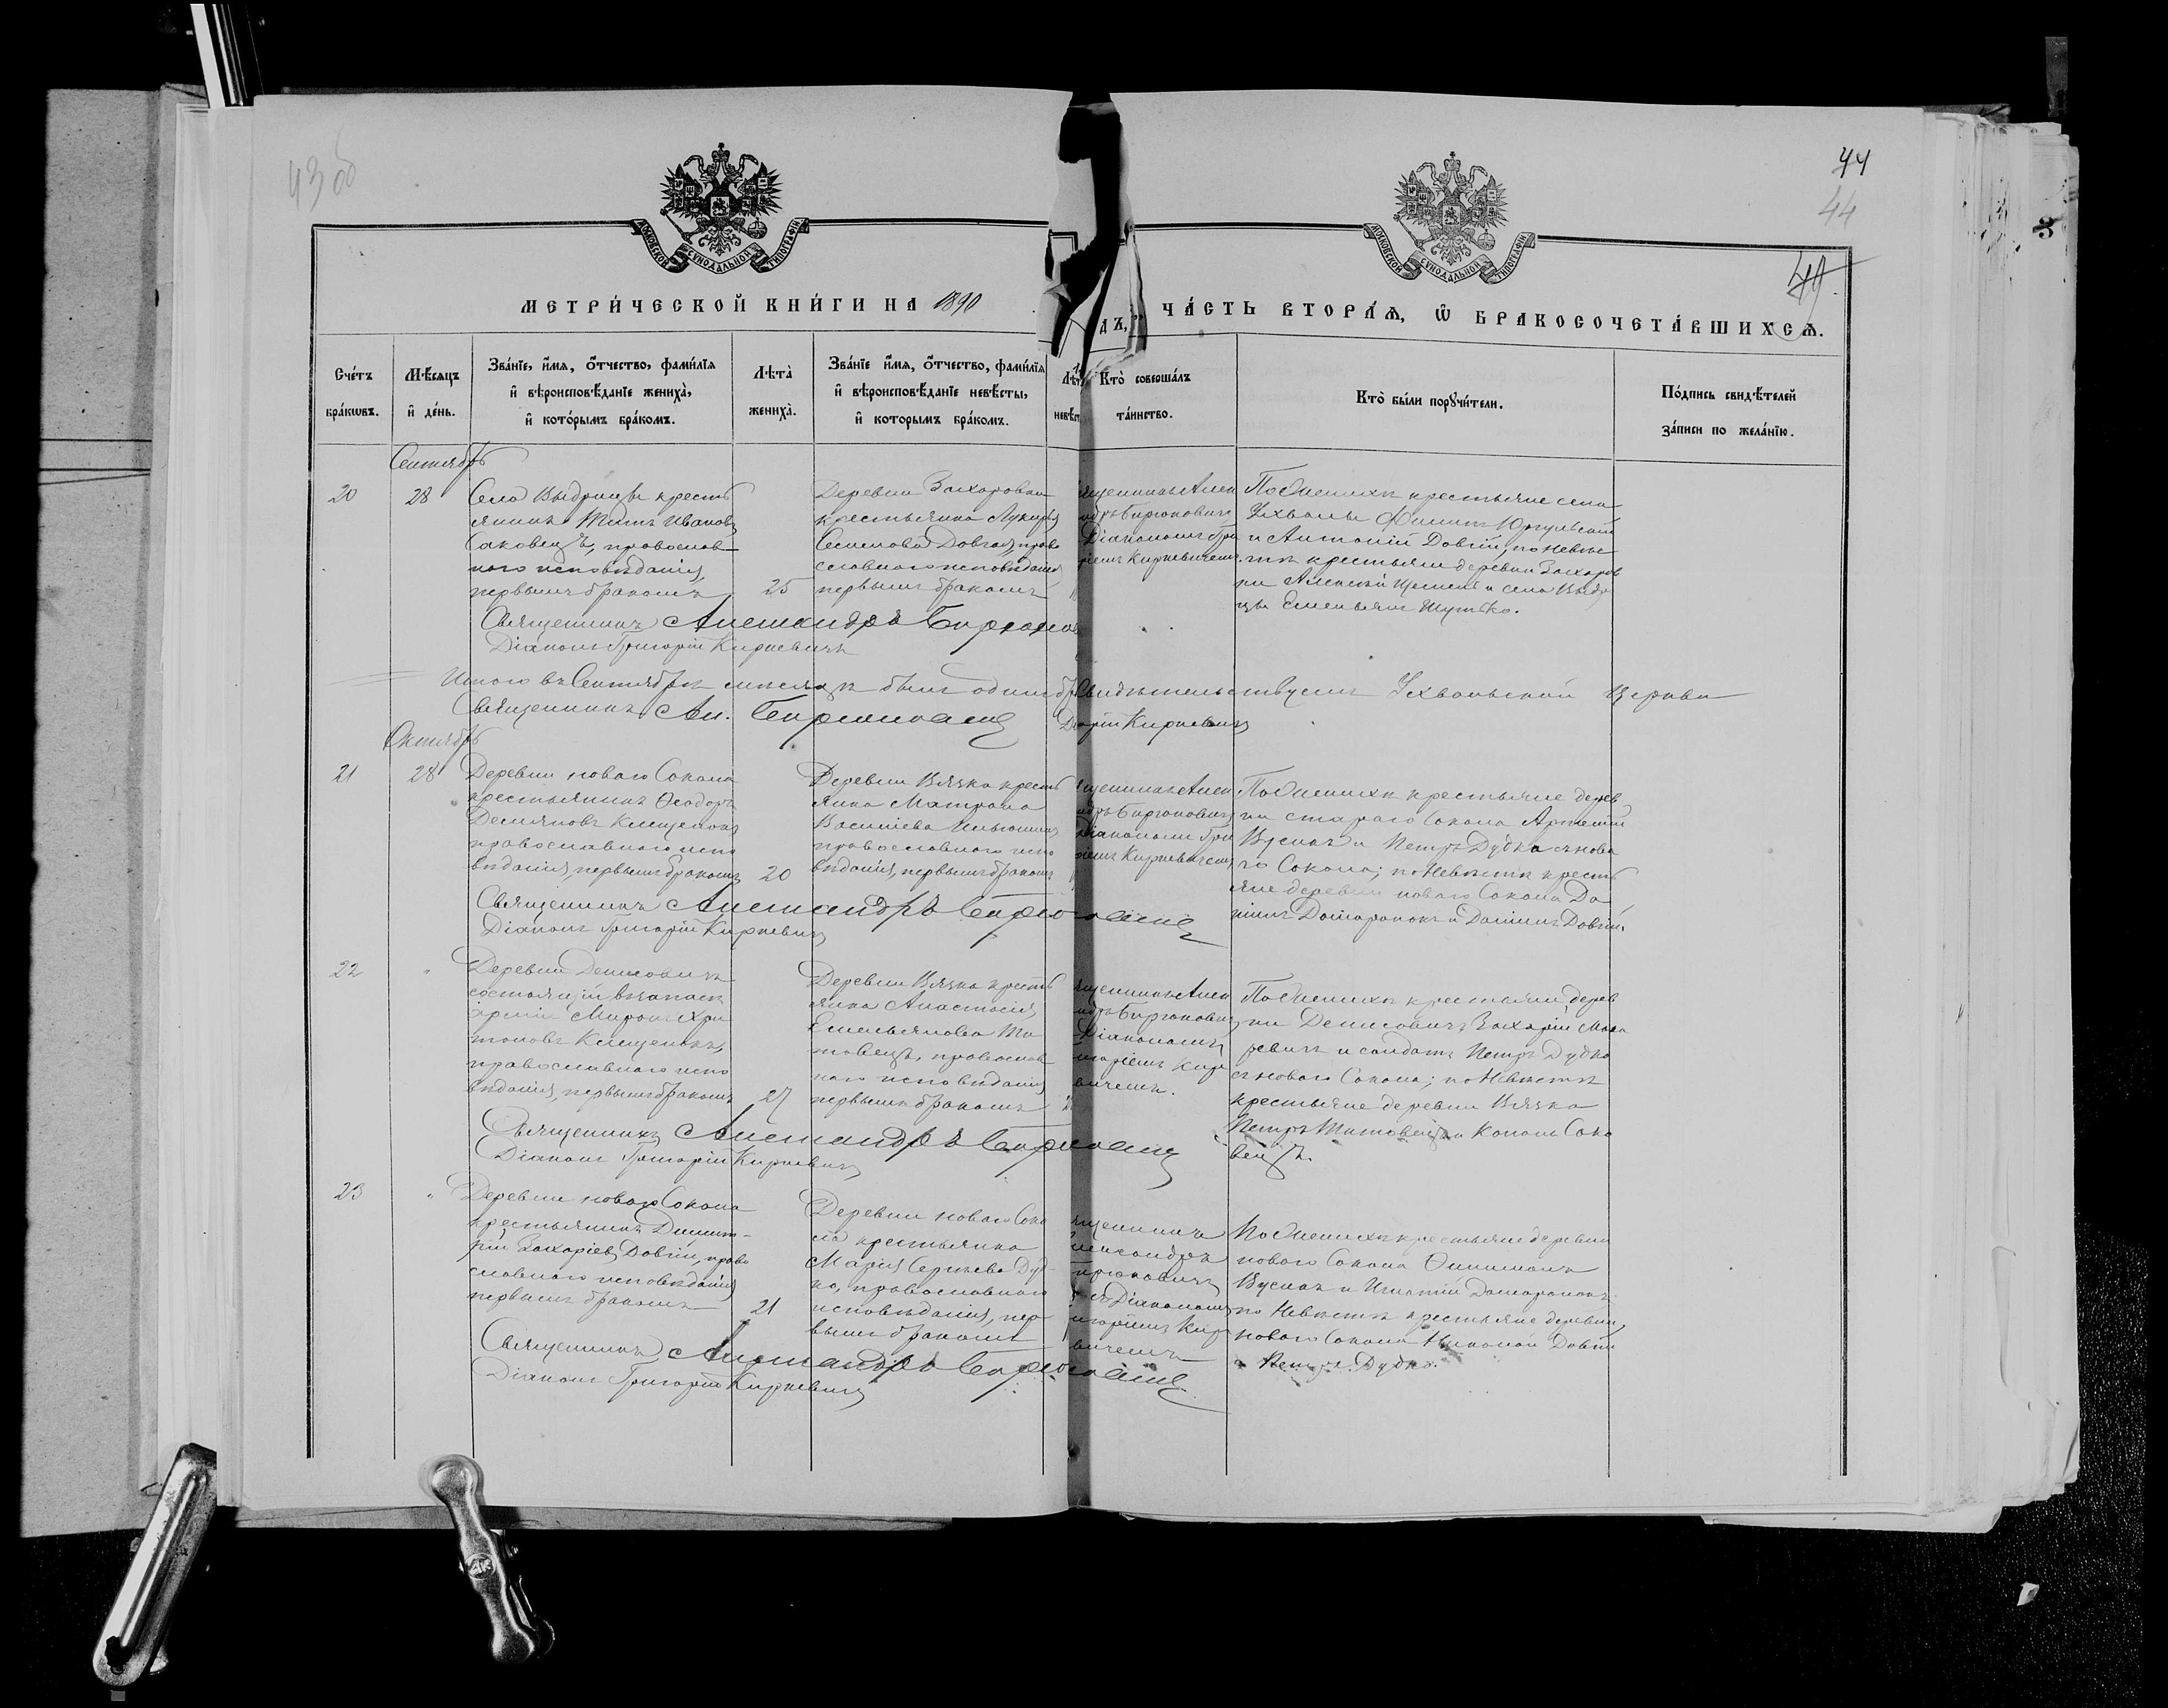 43 об
44
44
44
МОСКОВСКОЙ СѴНОДАЛЬНОЙ ТИПОГРАФІИ
МОСКОВСКОЙ СѴНОДАЛЬНОЙ ТИПОГРАФІИ
МЕТРИ́ЧЕСКОЙ КНИ́ГИ НА 1890
ДЪ, ЧА́СТЬ ВТОРА́Ѧ, Ѽ БРАКОСОЧЕТА́ВШИХСѦ.
Сче́тъ бра́кѡвъ.
Мѣ́сяцъ и҆ де́нь.
Зва́нїе, и҆́мя, ѻ҆́тчество, фами́лїя и҆ вѣроисповѣ́данїе жениха̀, и҆ кото́рымъ бра́комъ.
Лѣта̀ жениха̀.
Зва́нїе и҆́мя, ѻ҆́тчество, фами́лїя и҆ вѣроисповѣ́данїе невѣ́сты, и҆ которымъ бра́комъ.
Лѣт невѣст
Кто̀ соверша́лъ та́инство.
Кто̀ бы́ли порꙋчи́тели.
По́дпись свидѣ́телей за́писи по жела́нїю.
Сентябрь
20
28
Села Выдрицы кресть
янинъ Титъ Ивановъ
Саковецъ, православ-
наго исповѣданія,
первымъ бракомъ
25
Деревни Захаровки
крестьянка Лукерья
Семенова Довгая, право
славнаго исповѣданія
первымъ бракомъ
ященникъ Алек
ндръ Бирюковичъ
Діакономъ Гри
ріемъ Киркевичемъ.
По Женихѣ крестьяне села
Ухвалы Филипъ
и Антоній Довгій, по Невѣс
тѣ крестьяне деревни Захаров
ки Алексѣй и села Выдри
цы Емельянъ Шутько.
Священникъ Александръ Бирюков
Діаконъ Григорій Киркевичъ
Итого въ Сентябрѣ мѣсяцѣ былъ одинъ бр Свидѣтельствуемъ Ухвальской Церкви
Священникъ Ал. Бирюковичъ
Киркевичъ
Октябрь
21
28
Деревни новаго Сокола
крестьянинъ Ѳеодоръ
Деміановъ Клещенокъ
православнаго испо
вѣданія, первымъ бракомъ
20
Деревни Вязка кресть
янка Матрона
Василіева
православнаго испо
вѣданія, первымъ бракомъ
ященникъ Алек
ндръ Бирюковичъ
Діакономъ Гри
ріемъ Киркевичемъ
По Женихѣ крестьяне дерев
ни стараго Сокола Артемій
Вуснакъ и Петръ Дудка съ нова
го Сокола; по Невѣстѣ кресть
яне деревни новаго Сокола Да
ніилъ и Даніилъ Довгій.
Священникъ Александръ Бирюковичъ
Діаконъ Григорій Киркевичъ
22
"
Деревни Денисовичъ
состоящій въ запасѣ
арміи Миронъ Хри
тоновъ Клещенокъ,
православнаго испо
вѣданія, первымъ бракомъ
27
Деревни Вязка кресть
янка Анастасія
Емельянова Ти
товецъ, православ
наго исповѣданія
первымъ бракомъ
ященникъ Алек
ндръ Бирюковичъ
Діакономъ
игоріемъ Кирк
вичемъ.
По Женихѣ крестьяне дерев
ни Денисовичъ Захарій Мака
ревичъ и солдатъ Петръ Дудка
съ новаго Сокола; по Невѣстѣ
крестьяне деревни Вязка
Петръ Титовецъ и Кононъ Сако
вецъ.
Священникъ Александръ Бирюковичъ
Діаконъ Григорій Киркевичъ
23
"
Деревни новаго Сокола
крестьянинъ Димит-
рій Захаріевъ Довгій, право
славнаго исповѣданія
первымъ бракомъ
21
Деревни новаго Соко
ла крестьянка
Марія Сергѣева Дуд-
ко, православнаго
исповѣданія, пер-
вымъ бракомъ
ященникъ
лександръ
ирюковичъ
съ Діакономъ
игоріемъ Кирк
вичемъ
По Женихѣ крестьяне деревни
новаго Сокола
Вуснакъ и Игнатій
по Невѣстѣ крестьяне деревни
новаго Сокола Николай Довгій
и Петръ Дудка.
Священникъ Александръ Бирюковичъ
Діаконъ Григорій Киркевичъ